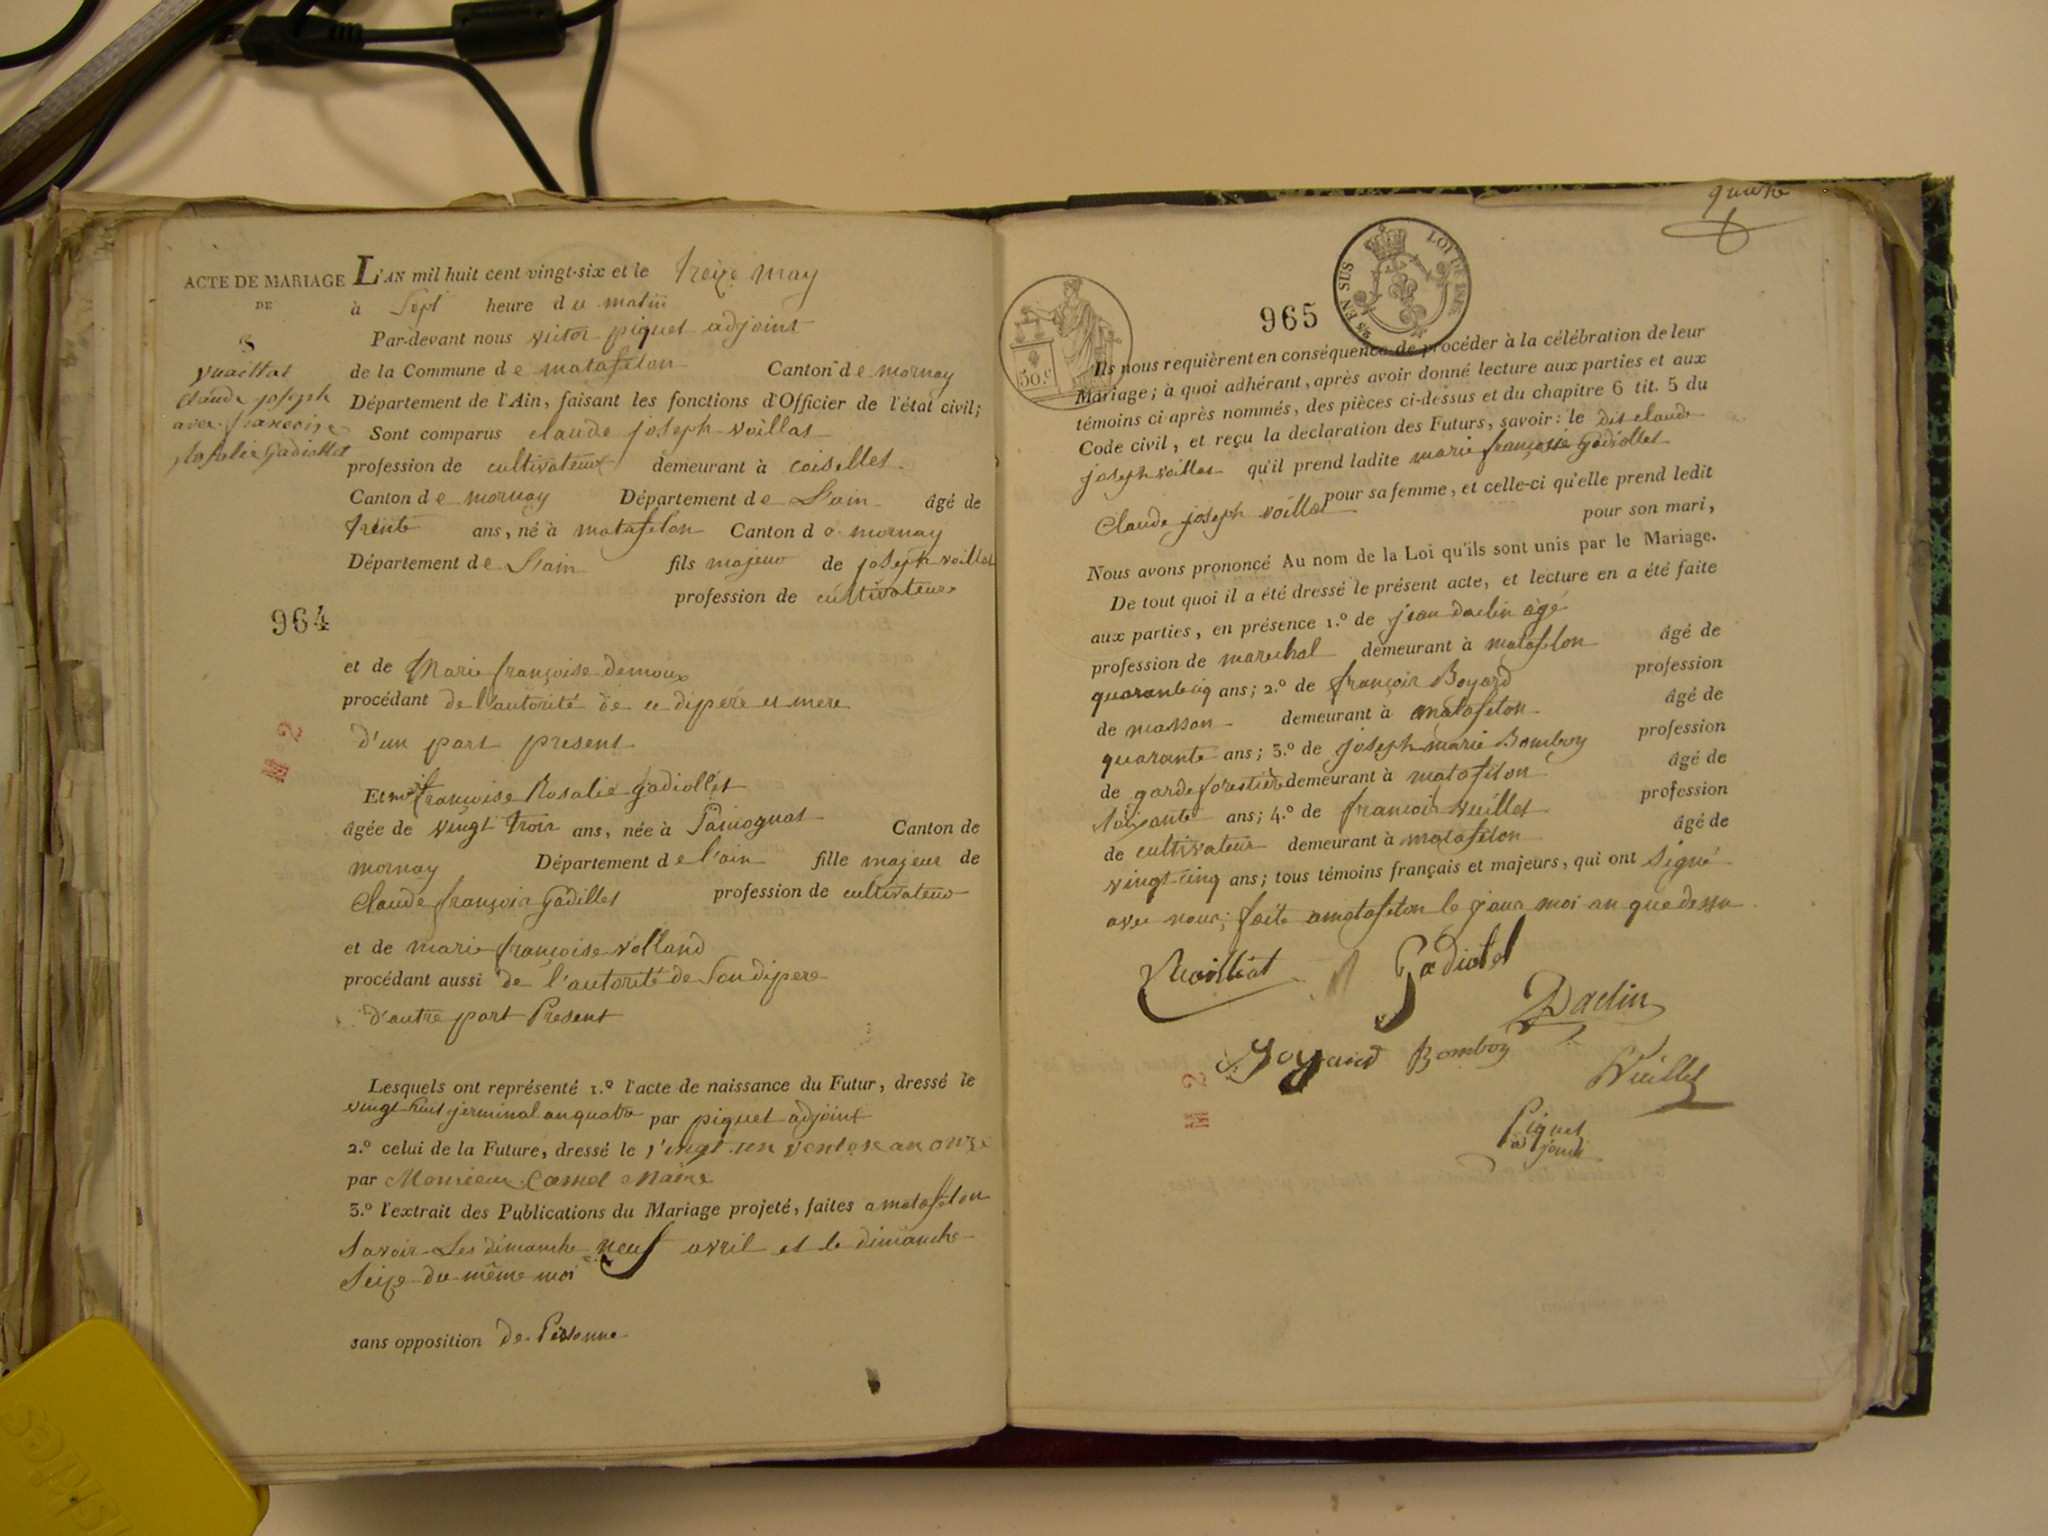 ACTE DE MARIAGE
DE
8
Vuaillat
Claude joseph
avec francoise
Rosalie Gadiollet
L'AN mil huit cent vingt-six et le treize may
à Sept heure du matin
Par-devant nous victor piquet adjoint
de la Commune de matafelon Canton de mornay
Département de l'Ain, faisant les fonctions d'Officier de l'état civil;
Sont comparus claude joseph voillat
profession de cultivateur demeurant à coiselles
Canton de mornay Département de L'ain âgé de
trente ans, né à matafelon Canton de mornay
Département de L'ain fils majeur de joseph voillat
profession de cultivateur
964
et de Marie françoise demoux
procédant de l'autorité de ce dipere et mere
d'un part present
Et françoise Rosalie Gadiollet
âgée de vingt trois ans, née à Samognat Canton de
mornay Département de l'ain fille majeur de
Claude françois Gadillet profession de cultivateur
et de marie françoise volland
procédant aussi de l'autorité de Son dipere
d'autre part Present
Lesquels ont représenté 1.º l'acte de naissance du Futur, dressé le
vingt huit jerminal an quatre par piquet adjoint
2.º celui de la Future, dressé le vingt un ventose an onze
par Monsieur Maire
3.º l'extrait des Publications du Mariage projeté, faites a matafelon
Savoir Les dimanche neuf avril et le dimanche
Seize du même moi
sans opposition de Personne
quatre
50.c
965
25 EN SUS
LOI DE
Ils nous requièrent en conséquence de procéder à la célébration de leur
Mariage; à quoi adhérant, après avoir donné lecture aux parties et aux
témoins ci après nommés, des pièces ci-dessus et du chapitre 6 tit. 5 du
Code civil, et reçu la déclaration des Futurs, savoir: le dit claude
joseph voillat qu'il prend ladite marie françoise Gadiollet
pour sa femme, et celle-ci qu'elle prend ledit
Claude joseph voillat pour son mari,
Nous avons prononcé Au nom de la Loi qu'ils sont unis par le Mariage.
De tout quoi il a été dressé le présent acte, et lecture en a été faite
aux parties, en présence 1.º de jean daclin âgé
profession de marechal demeurant à matafelon âgé de
quarante ciq ans; 2.º de françois Boyard profession
de masson demeurant à matafelon âgé de
quarante ans; 3.º de joseph marie Bomboy profession
de garde forestier demeurant à matafelon âgé de
soixante ans; 4.º de françois vuillet profession
de cultivateur demeurant à matafelon âgé de
vingt cinq ans; tous témoins français et majeurs, qui ont Signé
avec nous; faite a matafelon le jour moi an que dessu
Vuaillat Gadiolet
Daclin
Boyard Bomboy
Vuillet
Piquet
adjoint